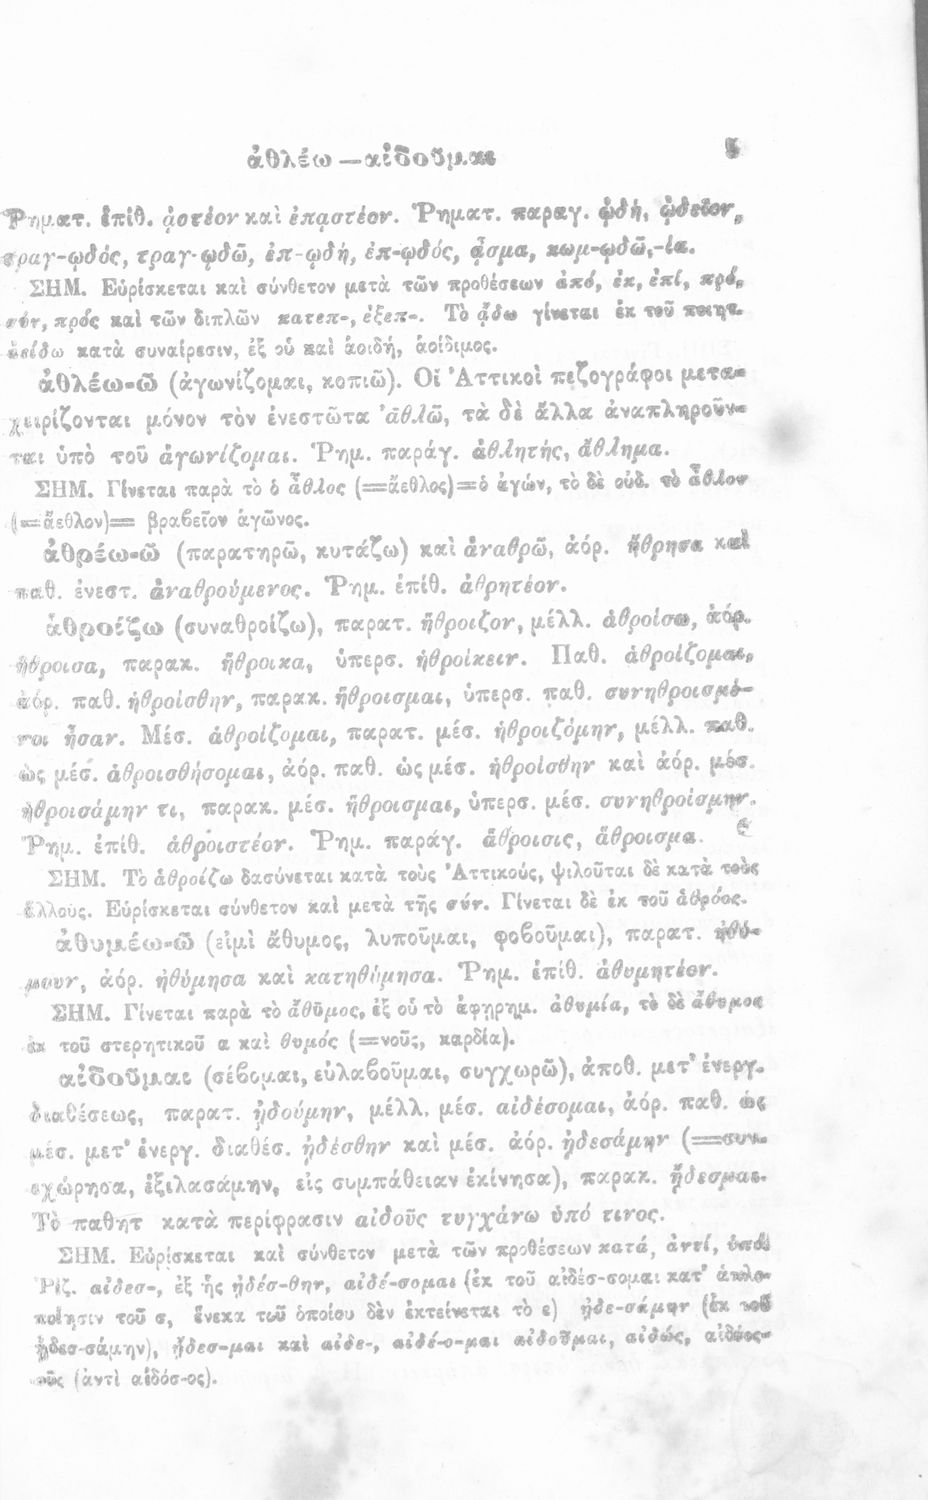 ἀθλέω — αἰδοῦμαι 5
Ῥηματ. ἐπίθ. ᾀστέον καὶ ἐπᾳστέον. Ῥηματ. παραγ. ᾠδή, ᾠδεῖον,
τραγ-ῳδός, τραγ-ῳδῶ, ἐπ-ῳδή, ἐπ-ῳδός, ᾆσμα, κωμ-ῳδῶ, -ία.
ΣΗΜ. Εὑρίσκεται καὶ σύνθετον μετὰ τῶν προθέσεων ἀπό, ἐκ, ἐπί, πρό,
σύν, πρός καὶ τῶν διπλῶν κατεπ-, ἐξεπ-. Τὸ ᾄδω γίνεται ἐκ τοῦ ποιητ.
ἀείδω κατὰ συναίρεσιν, ἐξ οὗ καὶ ἀοιδή, ἀοίδιμος.
ἀθλέω-ῶ (ἀγωνίζομαι, κοπιῶ). Οἱ Ἀττικοὶ πεζογράφοι μετα-
χειρίζονται μόνον τὸν ἐνεστῶτα ἀθλῶ, τὰ δὲ ἄλλα ἀναπληροῦν-
ται ὑπὸ τοῦ ἀγωνίζομαι. Ῥημ. παράγ. ἀθλητής, ἄθλημα.
ΣΗΜ. Γίνεται παρὰ τὸ ὁ ἆθλος (=ἄεθλος)=ὁ ἀγών, τὸ δὲ οὐδ. τὸ ἆθλον
(=ἄεθλον)= βραβεῖον ἀγῶνος.
ἀθρέω-ῶ (παρατηρῶ, κυτάζω) καὶ ἀναθρῶ, ἀόρ. ἤθρησα καὶ
παθ. ἐνεστ. ἀναθρούμενος. Ῥημ. ἐπίθ. ἀθρητέον.
ἁθροίζω (συναθροίζω), παρατ. ἥθροιζον, μέλλ. ἁθροίσω, ἀόρ.
ἥθροισα, παρακ. ἥθροικα, ὑπερσ. ἡθροίκειν. Παθ. ἁθροίζομαι,
ἀόρ. παθ. ἡθροίσθην, παρακ. ἥθροισμαι, ὑπερσ. παθ. συνηθροισμέ-
νοι ἦσαν. Μέσ. ἁθροίζομαι, παρατ. μέσ. ἡθροιζόμην, μέλλ. παθ.
ὡς μέσ. ἁθροισθήσομαι, ἀόρ. παθ. ὡς μέσ. ἡθροίσθην καὶ ἀόρ. μέσ.
ἡθροισάμην τι, παρακ. μέσ. ἥθροισμαι, ὑπερσ. μέσ. συνηθροίσμην.
Ῥημ. ἐπίθ. ἁθροιστέον. Ῥημ. παράγ. ἅθροισις, ἅθροισμα.
ΣΗΜ. Τὸ ἁθροίζω δασύνεται κατὰ τοὺς Ἀττικούς, ψιλοῦται δὲ κατὰ τοὺς
ἄλλους. Εὑρίσκεται σύνθετον καὶ μετὰ τῆς σύν. Γίνεται δὲ ἐκ τοῦ ἁθρόος.
ἀθυμέω-ῶ (εἰμὶ ἄθυμος, λυποῦμαι, φοβοῦμαι), παρατ. ἠθύ-
μουν, ἀόρ. ἠθύμησα καὶ κατηθύμησα. Ῥημ. ἐπίθ. ἀθυμητέον.
ΣΗΜ. Γίνεται παρὰ τὸ ἄθυμος, ἐξ οὗ τὸ ἀφηρημ. ἀθυμία, τὸ δὲ ἄθυμος
ἐκ τοῦ στερητικοῦ α καὶ θυμός (=νοῦς, καρδία).
αἰδοῦμαι (σέβομαι, εὐλαβοῦμαι, συγχωρῶ), ἀποθ. μετ' ἐνεργ.
διαθέσεως, παρατ. ᾐδούμην, μέλλ. μέσ. αἰδέσομαι, ἀόρ. παθ. ὡς
μέσ. μετ' ἐνεργ. διαθέσ. ᾐδέσθην καὶ μέσ. ἀόρ. ᾐδεσάμην (=συν-
εχώρησα, ἐξιλασάμην, εἰς συμπάθειαν ἐκίνησα), παρακ. ᾔδεσμαι.
Τὸ παθητ κατὰ περίφρασιν αἰδοῦς τυγχάνω ὑπό τινος.
ΣΗΜ. Εὑρίσκεται καὶ σύνθετον μετὰ τῶν προθέσεων κατά, ἀντί, ὑπό.
Ῥίζ. αἰδεσ-, ἐξ ἧς ᾐδέσ-θην, αἰδέ-σομαι (ἐκ τοῦ αἰδέσ-σομαι κατ' ἁπλο-
ποίησιν τοῦ σ, ἕνεκα τοῦ ὁποίου δὲν ἐκτείνεται τὸ ε) ᾐδε-σάμην (ἐκ τοῦ
ᾐδεσ-σάμην), ᾔδεσ-μαι καὶ αἰδε-, αἰδέ-ο-μαι αἰδοῦμαι, αἰδώς, αἰδέος-
οῦς (ἀντὶ αἰδόσ-ος).